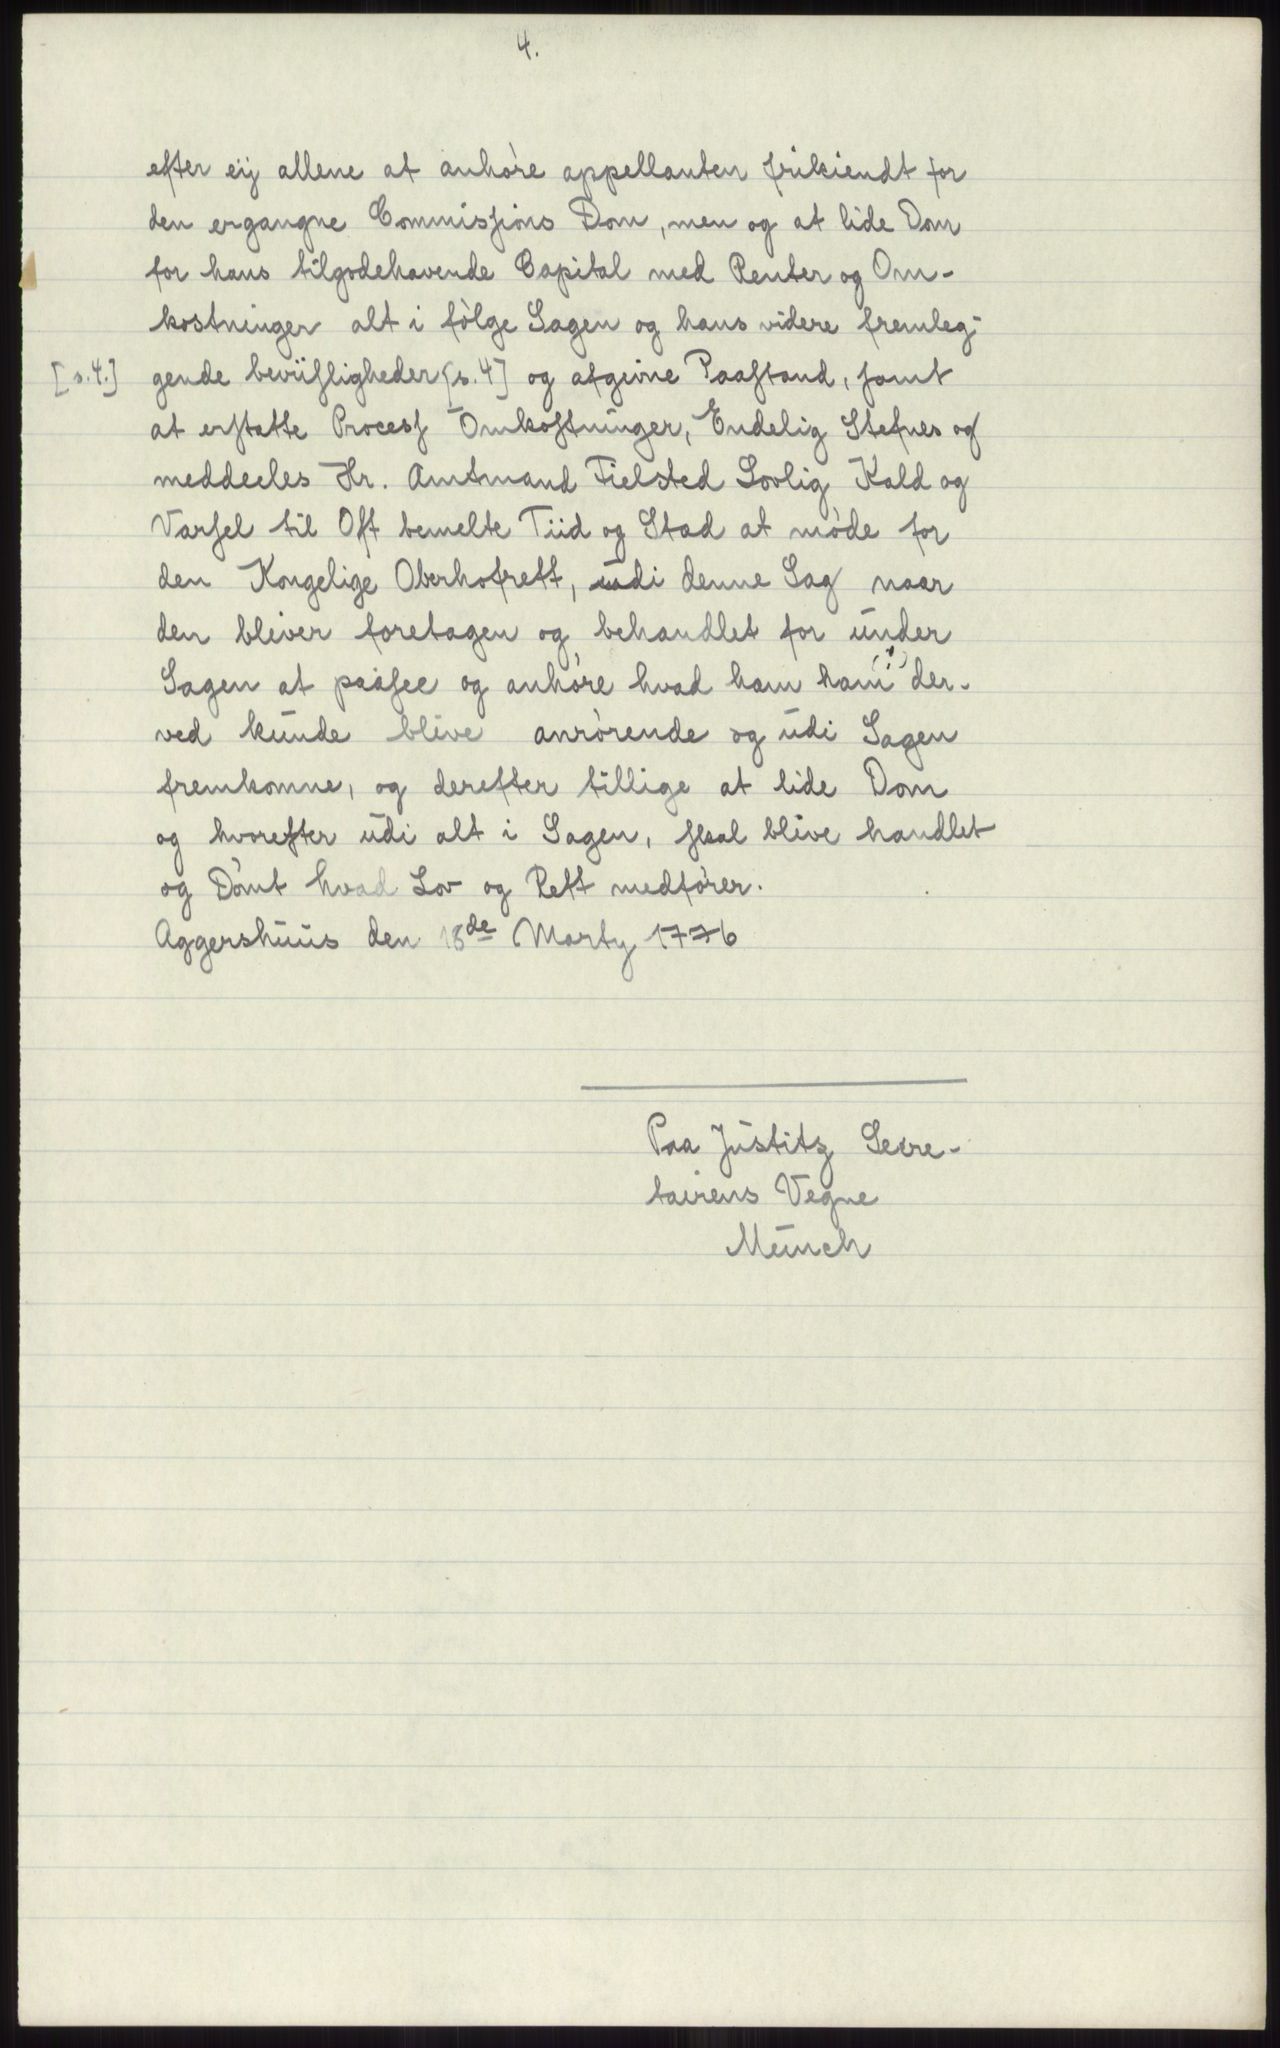 4.
efter eij allene at anhøre appellanten frikiendt for
den ergangne Commissjons Dom, men og at lide Dom
for hans tilgodehavende Capital med Renter og Om-
kostninger alt i følge Sagen og hans videre fremleg-
[s.4.] gende beviisligheder [s.4] og afgivne Paastand, samt
at erstatte Process Omkostninger, Endelig Stefnes og
meddeeles Hr. Amtmand Fielsted Lovlig Kald og
Varsel til Oft bemelte Tiid og Stad at møde for
den Kongelige Oberhofrett, udi denne Sag naar
den bliver foretagen og behandlet for under
Sagen at paasee og anhøre hvad ham ham (!) der-
ved kunde blive anrørende og udi Sagen
fremkomne, og derefter tillige at lide Dom
og hvorefter udi alt i Sagen, skal blive handlet
og Dømt hvad Lov og Rett medfører.
Aggershuus den 18de Marty 1776
Paa Justitz Secre-
tairens Vegne
Münch